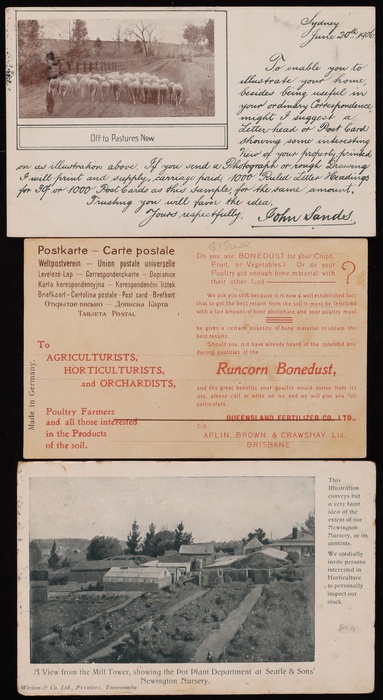 Sydney
June 20th, 1906
To enable you to
illustrate your home,
besides being useful in
your ordinary Correspondence,
might I suggest a
Letter head or Post Card
showing some interesting
View of your property, printed
Off to Pastures New.
on as illustration above. If you send a Photograph or rough Drawing
I will print and supply, carriage paid, 1000 Ruled Letter Headings
for or 1000 Post Cards as this sample, for the same amount.
Trusting you will favor the idea.
Yours, respectfully, John Sands.
Postkarte – Carte postale
Weltpostverein – Union postale universelle
Levelező-Lap – Correspondenzkarte – Dopisnice
Karta korespondencyjna – Korespondenčni listek
Briefkort – Cartolina postale – Post card – Brefkort
Открытое письмо – Дописна Карта
Tarjeta Postal
Made in Germany.
To
AGRICULTURISTS,
HORTICULTURISTS,
and ORCHARDISTS,
Poultry Farmers
and all those interested
in the Products
of the soil.
Do you use BONEDUST for your Crops,
Fruit, or Vegetables? Or do your
Poultry get enough bone material with
their other food ?
We ask you this because it is now a well established fact
that to get the best return from the soil it must be fertilized
with a fair amount of bone phosphate and your poultry must
be given a certain quantity of bone material to obtain the
best results.
Should you not have already heard of the splendid pro
ducing qualities of the
Runcorn Bonedust,
and the great benefits your would derive from its
use, please call or write on us and we will give you full
particulars.
QUEENSLAND FERTILIZER CO. LTD.,
C/o
APLIN, BROWN, & CRAWSHAY, Ltd.,
BRISBANE
This
Illustration
conveys but
a very faint
idea of the
extent of our
Newington
Nursery, or its
contents.
We cordially
invite persons
interested in
Horticulture
to personally
inspect our
stock.
A View from the Mill Tower, showing the Pot Plant Department at Searle & Sons'
Newington Nursery.
Weston & Co. Ltd., Printers, Toowoomba